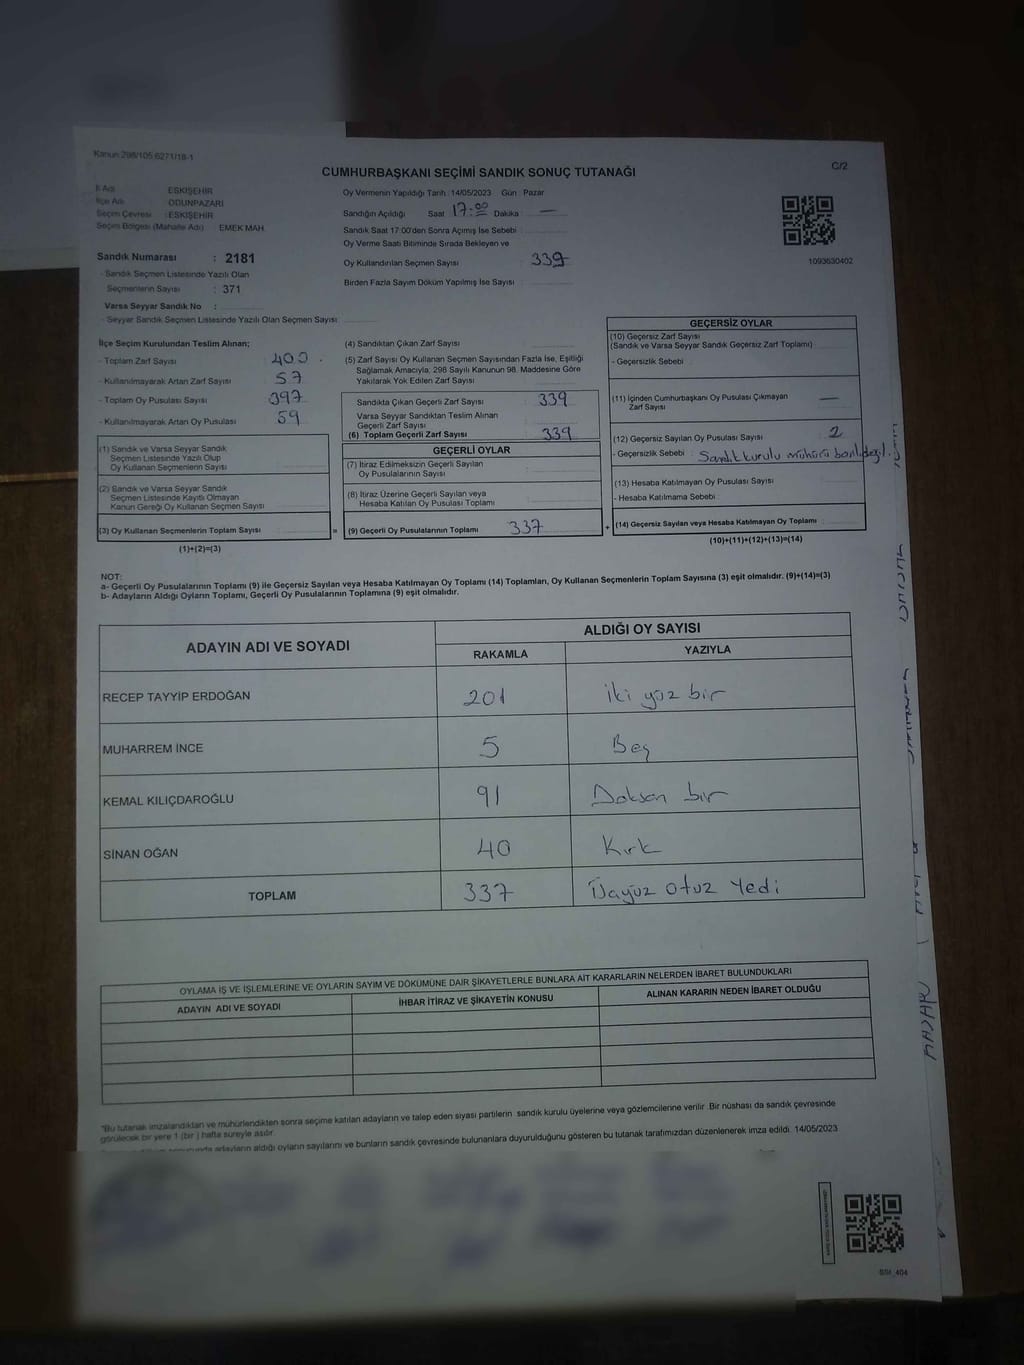 Kanun:298/105 6271/18-1
CUMHURBAŞKANI SEÇİMİ SANDIK SONUÇ TUTANAĞI
C/2
İl Adı : ESKİŞEHİR
İlçe Adı : ODUNPAZARI
Seçim Çevresi : ESKİŞEHİR
Seçim Bölgesi (Mahalle Adı) : EMEK MAH.
Sandık Numarası : 2181
- Sandık Seçmen Listesinde Yazılı Olan
Seçmenlerin Sayısı : 371
Varsa Seyyar Sandık No :
- Seyyar Sandık Seçmen Listesinde Yazılı Olan Seçmen Sayısı:
Oy Vermenin Yapıldığı Tarih : 14/05/2023 Gün : Pazar
Sandığın Açıldığı Saat : 17:00 Dakika : —
Sandık Saat 17:00'den Sonra Açımış İse Sebebi :
Oy Verme Saati Bitiminde Sırada Bekleyen ve
Oy Kullandırılan Seçmen Sayısı : 339
Birden Fazla Sayım Döküm Yapılmış İse Sayısı :
1093630402
İlçe Seçim Kurulundan Teslim Alınan;
- Toplam Zarf Sayısı : 400
- Kullanılmayarak Artan Zarf Sayısı : 57
- Toplam Oy Pusulası Sayısı : 397
- Kullanılmayarak Artan Oy Pusulası : 59
(1) Sandık ve Varsa Seyyar Sandık
Seçmen Listesinde Yazılı Olup
Oy Kullanan Seçmenlerin Sayısı :
(2) Sandık ve Varsa Seyyar Sandık
Seçmen Listesinde Kayıtlı Olmayan
Kanun Gereği Oy Kullanan Seçmen Sayısı :
(3) Oy Kullanan Seçmenlerin Toplam Sayısı :
(1)+(2)=(3)
(4) Sandıktan Çıkan Zarf Sayısı :
(5) Zarf Sayısı Oy Kullanan Seçmen Sayısından Fazla İse, Eşitliği
Sağlamak Amacıyla; 298 Sayılı Kanunun 98. Maddesine Göre
Yakılarak Yok Edilen Zarf Sayısı :
Sandıkta Çıkan Geçerli Zarf Sayısı : 339
Varsa Seyyar Sandıktan Teslim Alınan
Geçerli Zarf Sayısı :
(6) Toplam Geçerli Zarf Sayısı : 339
GEÇERLİ OYLAR
(7) İtiraz Edilmeksizin Geçerli Sayılan
Oy Pusulalarının Sayısı :
(8) İtiraz Üzerine Geçerli Sayılan veya
Hesaba Katılan Oy Pusulası Toplamı :
= (9) Geçerli Oy Pusulalarının Toplamı : 337
GEÇERSİZ OYLAR
(10) Geçersiz Zarf Sayısı
(Sandık ve Varsa Seyyar Sandık Geçersiz Zarf Toplamı) :
- Geçersizlik Sebebi :
(11) İçinden Cumhurbaşkanı Oy Pusulası Çıkmayan
Zarf Sayısı : —
(12) Geçersiz Sayılan Oy Pusulası Sayısı : 2
- Geçersizlik Sebebi : Sandık kurulu mühürü basılı değil.
(13) Hesaba Katılmayan Oy Pusulası Sayısı :
- Hesaba Katılmama Sebebi :
+ (14) Geçersiz Sayılan veya Hesaba Katılmayan Oy Toplamı :
(10)+(11)+(12)+(13)=(14)
NOT:
a- Geçerli Oy Pusulalarının Toplamı (9) ile Geçersiz Sayılan veya Hesaba Katılmayan Oy Toplamı (14) Toplamları, Oy Kullanan Seçmenlerin Toplam Sayısına (3) eşit olmalıdır. (9)+(14)=(3)
b- Adayların Aldığı Oyların Toplamı, Geçerli Oy Pusulalarının Toplamına (9) eşit olmalıdır.
ADAYIN ADI VE SOYADI
ALDIĞI OY SAYISI
RAKAMLA YAZIYLA
RECEP TAYYİP ERDOĞAN 201 iki yüz bir
MUHARREM İNCE 5 Beş
KEMAL KILIÇDAROĞLU 91 Doksan bir
SİNAN OĞAN 40 Kırk
TOPLAM 337 Üçyüz otuz Yedi
OYLAMA İŞ VE İŞLEMLERİNE VE OYLARIN SAYIM VE DÖKÜMÜNE DAİR ŞİKAYETLERLE BUNLARA AİT KARARLARIN NELERDEN İBARET BULUNDUKLARI
ADAYIN ADI VE SOYADI İHBAR İTİRAZ VE ŞİKAYETİN KONUSU ALINAN KARARIN NEDEN İBARET OLDUĞU
"Bu tutanak imzalandıktan ve mühürlendikten sonra seçime katılan adayların ve talep eden siyasi partilerin sandık kurulu üyelerine veya gözlemcilerine verilir. Bir nüshası da sandık çevresinde
görülecek bir yere 1 (bir) hafta süreyle asılır.
adayların aldığı oyların sayılarını ve bunların sandık çevresinde bulunanlara duyurulduğunu gösteren bu tutanak tarafımızdan düzenlenerek imza edildi. 14/05/2023